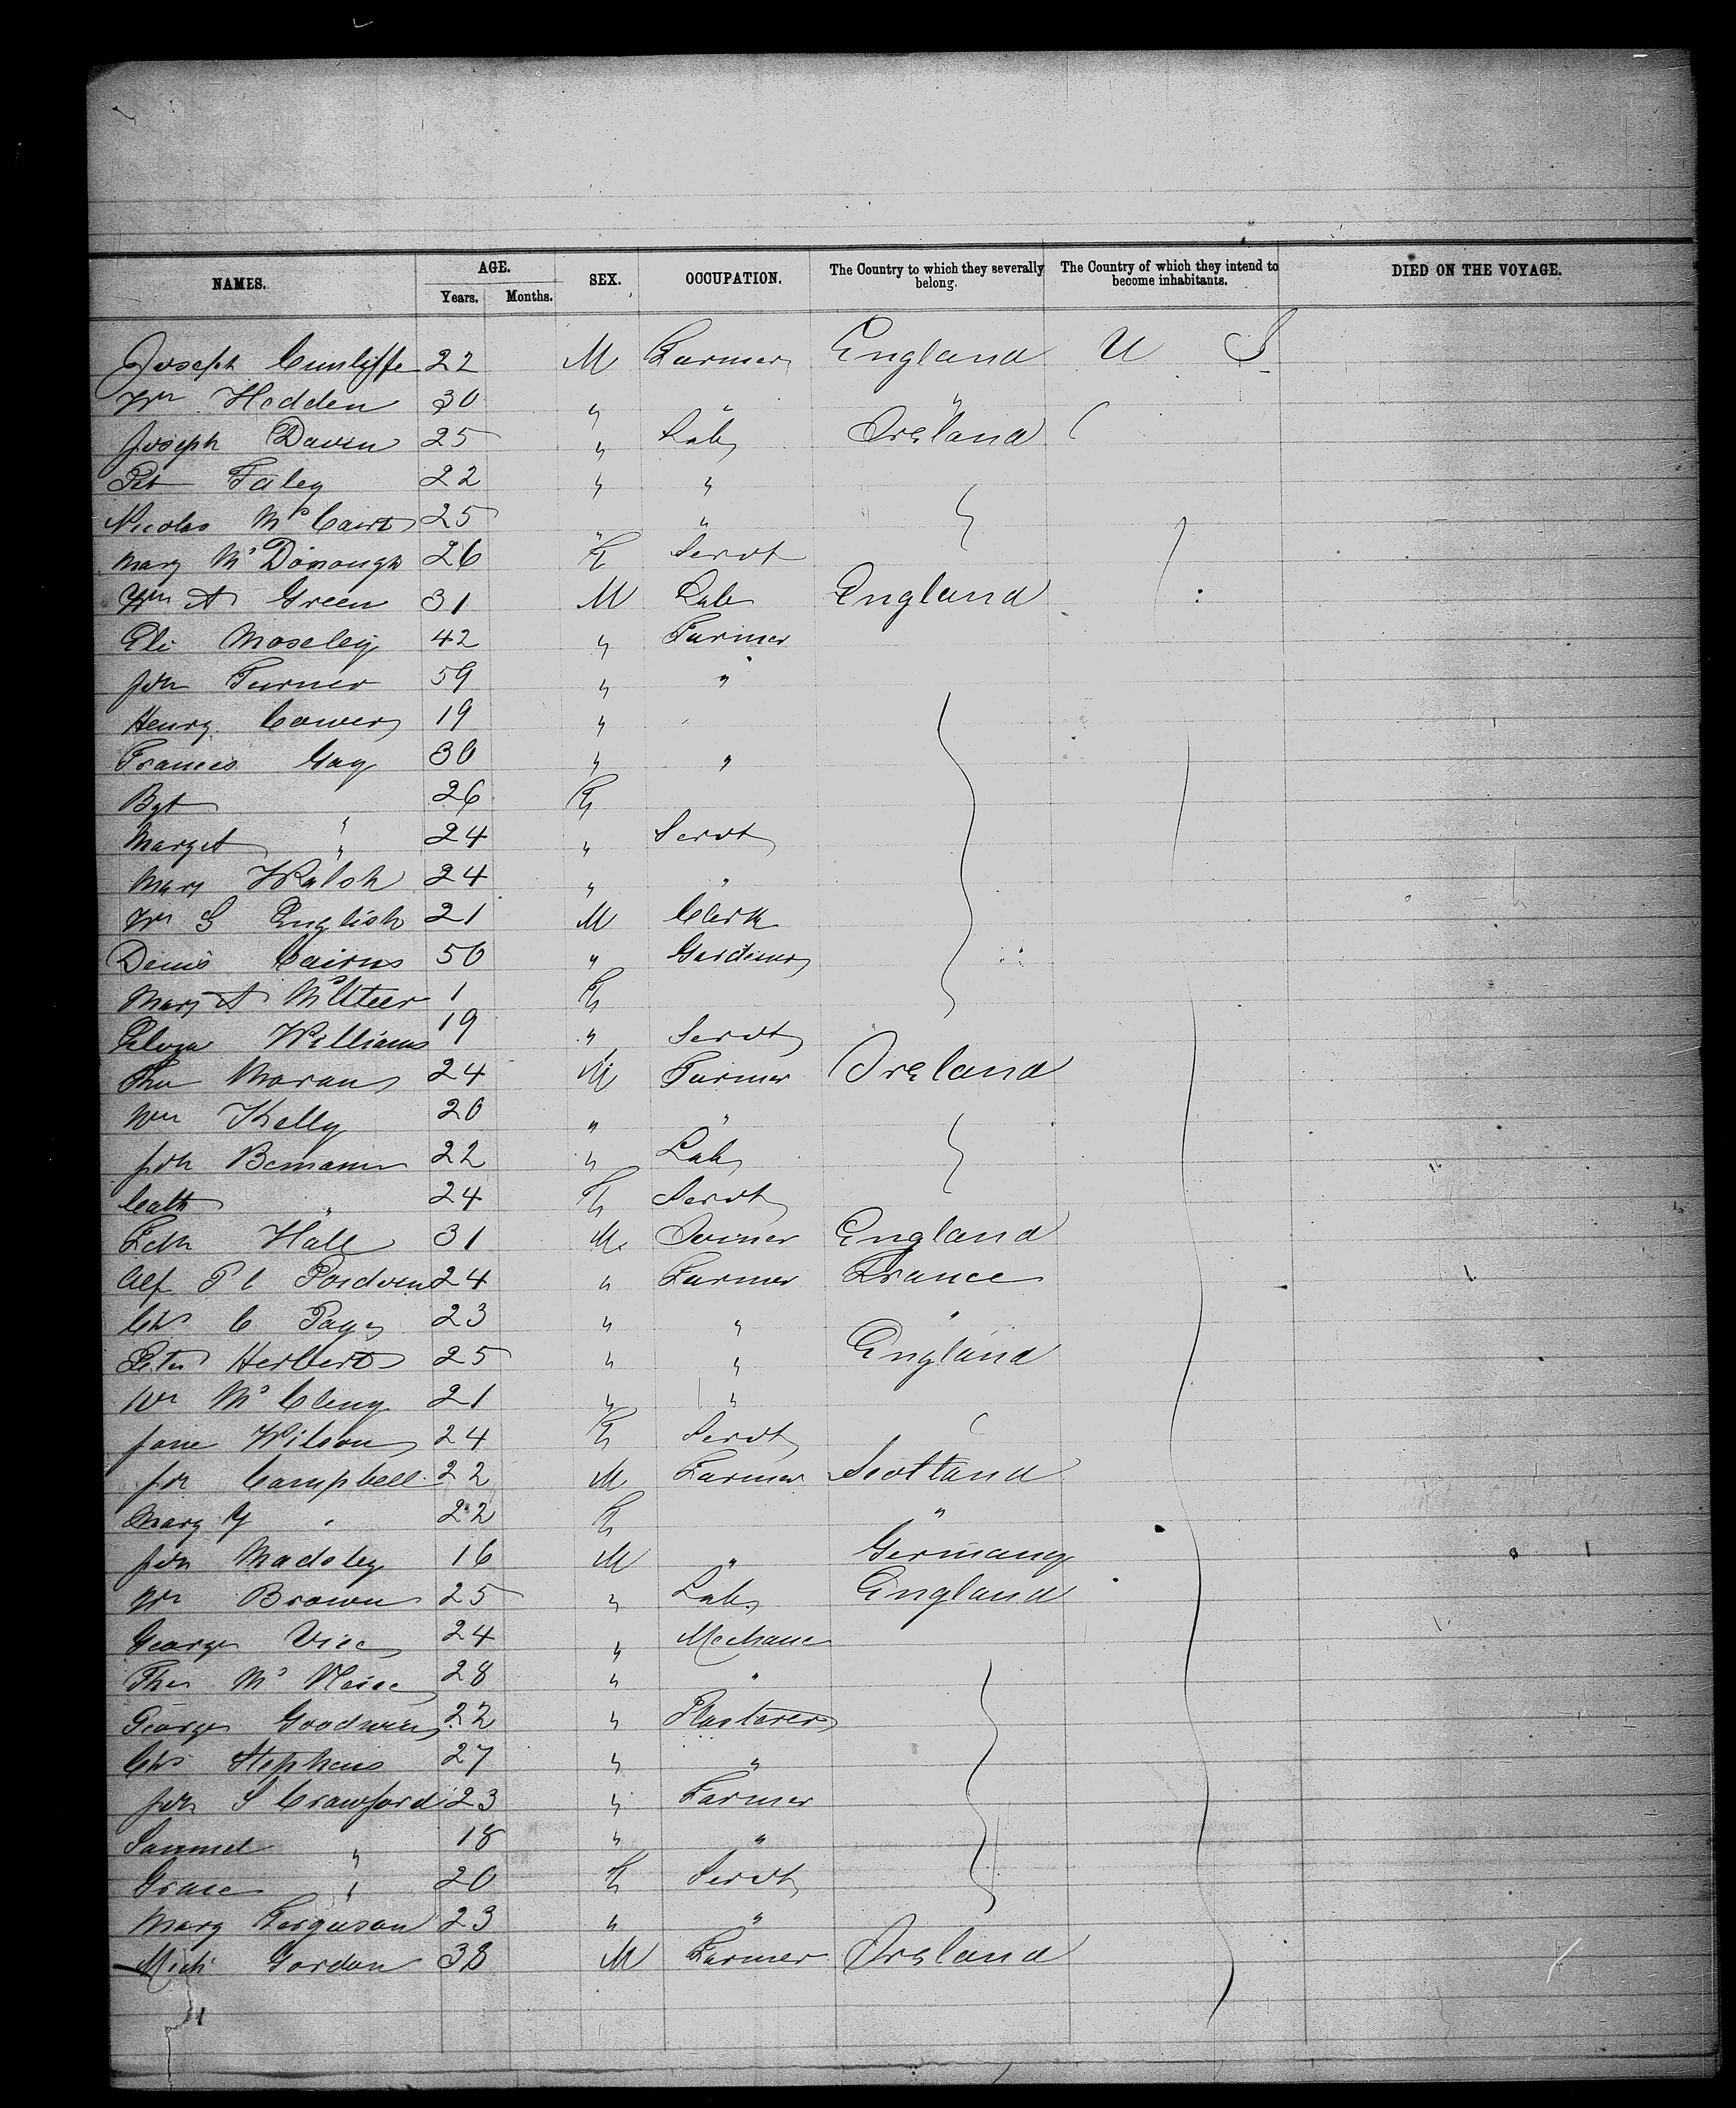 NAMES. AGE. SEX. OCCUPATION. The Country to which they severally belong. The Country of which they intend to become inhabitants. DIED ON THE VOYAGE.
Years. Months.
Joseph Cunliffe 22 M Farmer England U S
Wm Hodden 30 " " "
Joseph Daven 25 " Lab Ireland
Pat Faley 22 " "
Nicolas 25 " "
Mary McDonough 26 F Servt
Wm A Green 31 M Lab England
Eli Moseley 42 " Farmer
Jon Turner 59 " "
Henry 19 "
Francis Gay 30 " "
Bgt " 26 F
Marget " 24 " Servt
Mary Walsh 24 " "
Wm G English 21 M Clerk
Denis Cairns 50 " Gardiner
Mary A McAteer 1 F
Eliza Williams 19 " Servt
Tho Moran 24 M Farmer Ireland
Wm Kelly 20 " "
Jon 22 " Lab
Cath " 24 F Servt
Edn Hall 31 M Joiner England
Alf P C 24 " Farmer France
Chs C Page 23 " " "
Peter Herbert 25 " " England
Wm 21 " "
Jane Wilson 24 F Servt
Jn Campbell 22 M Farmer Scotland
Mary Y " 22 F "
Jon Madsley 16 M " Germany
Wm Brown 25 " Lab England
George Vice 24 " Mechanc
Thos 28 " "
George Goodwin 22 " Plasterer
Chs Stephens 27 " "
Jon S Crawford 23 " Farmer
Samuel " 18 " "
Grace " 20 F Servt
Mary Ferguson 23 " "
Mich Gordon 38 M Farmer Ireland